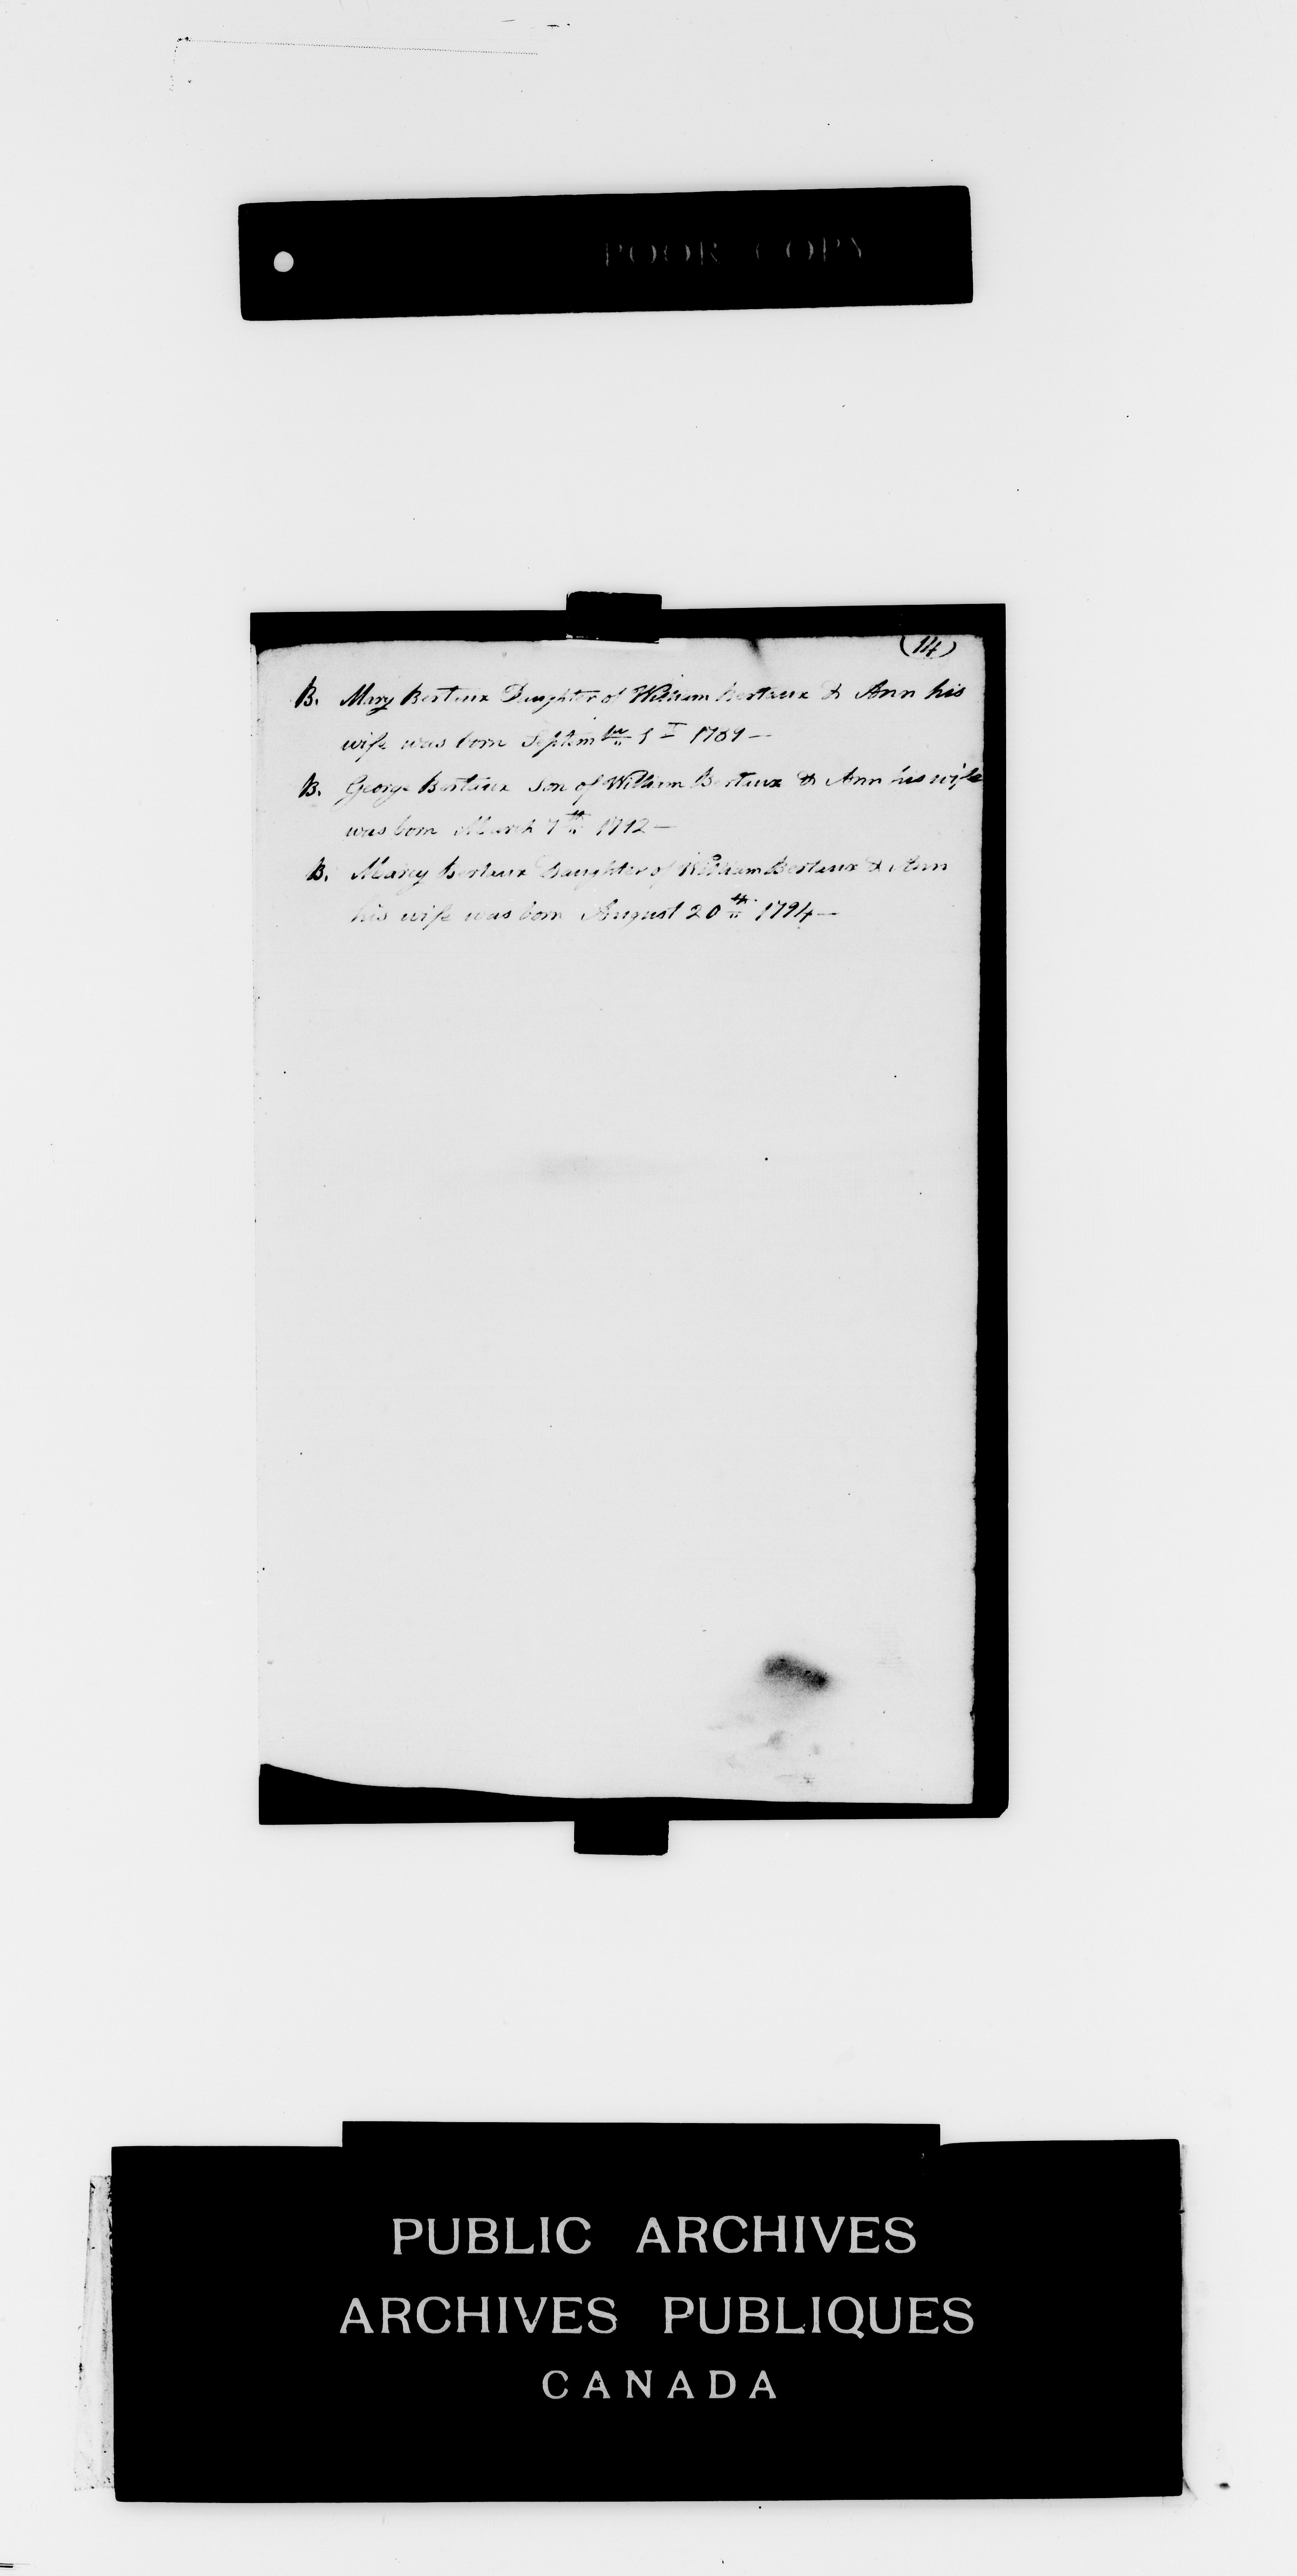 POOR COPY
(14)
B. Mary Berteaux Daughter of William Berteaux & Ann his
wife was born September 1st 1789—
B. George Berteaux Son of William Berteaux & Ann his wife
was born March 7th 1792—
B. Marcy Berteaux Daughter of William Berteaux & Ann
his wife was born August 20th 1794—
PUBLIC ARCHIVES
ARCHIVES PUBLIQUES
CANADA